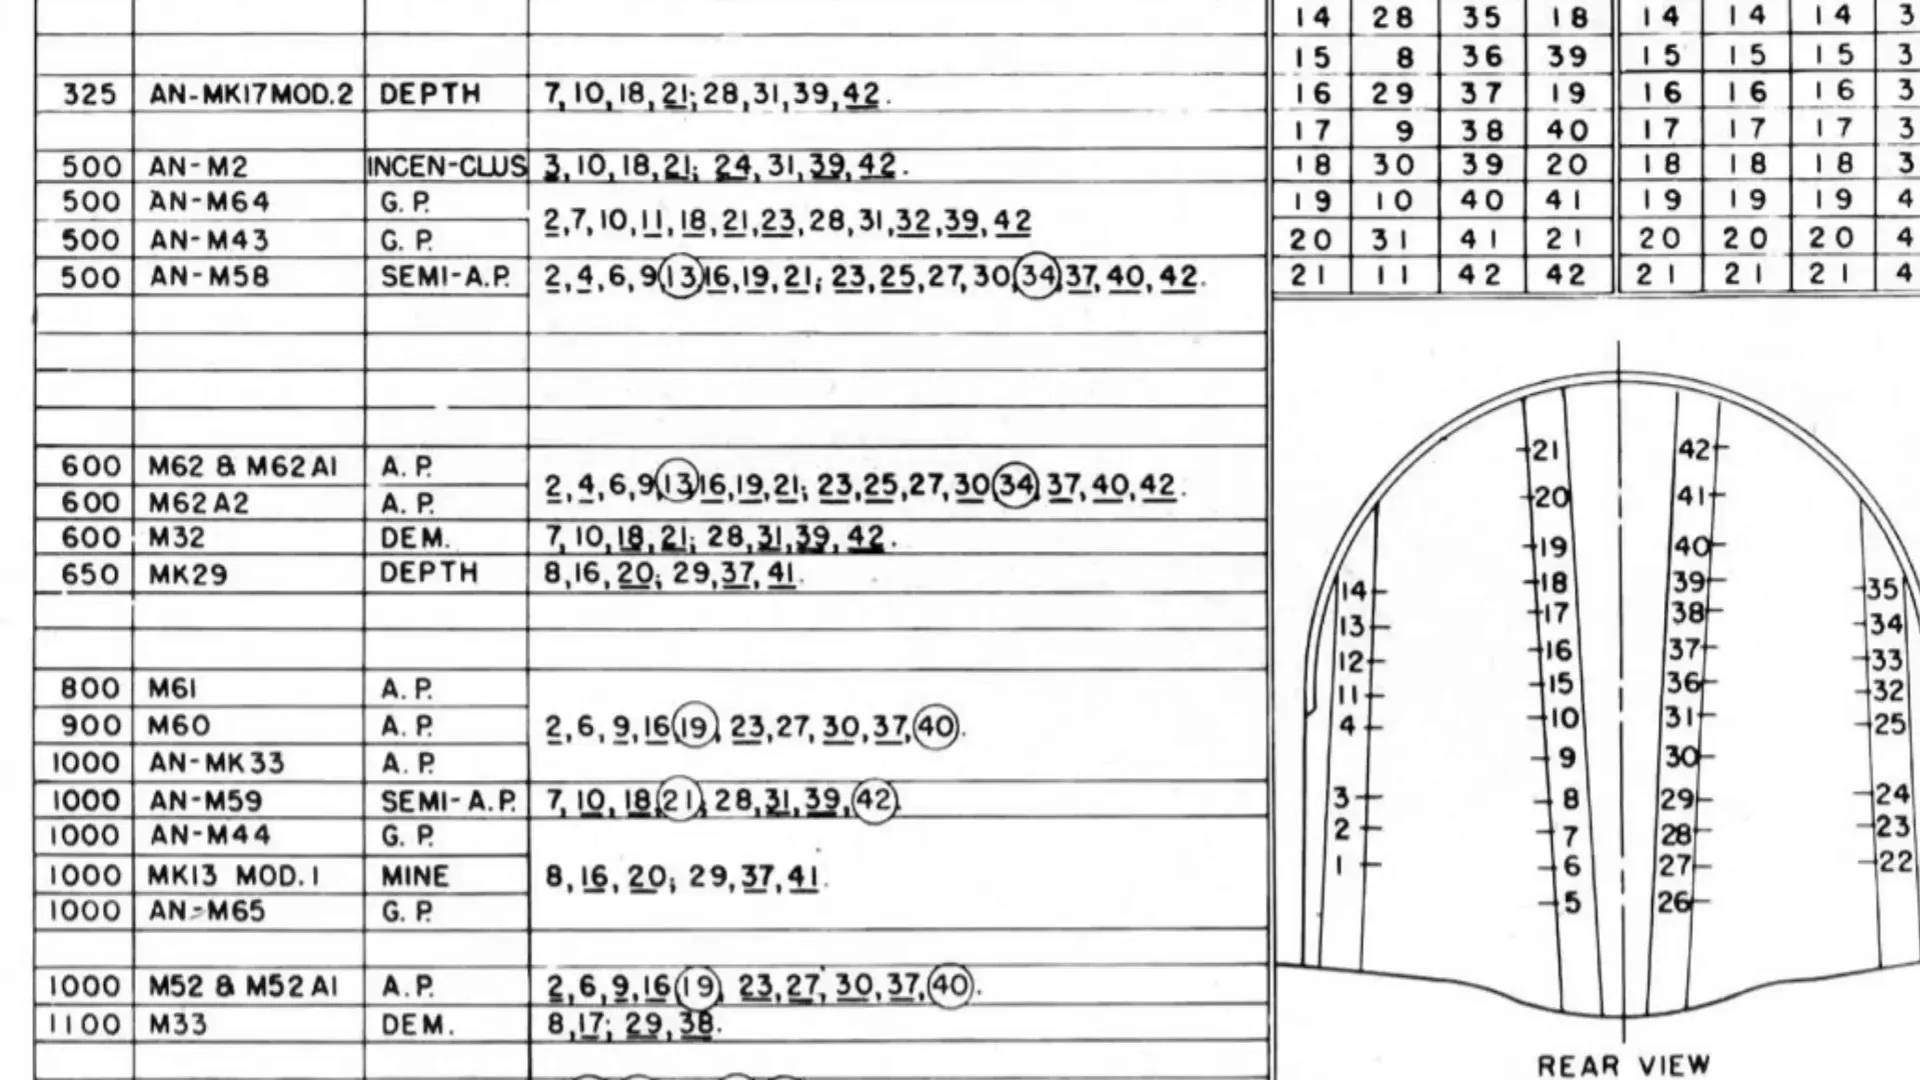 325 AN-MK17MOD.2 DEPTH 7, 10, 18, 21; 28, 31, 39, 42.
500 AN-M2 INCEN-CLUS 3, 10, 18, 21; 24, 31, 39, 42.
500 AN-M64 G.P.
2, 7, 10, 11, 18, 21, 23, 28, 31, 32, 39, 42
500 AN-M43 G.P.
500 AN-M58 SEMI-A.P. 2, 4, 6, 9, 13, 16, 19, 21; 23, 25, 27, 30, 34, 37, 40, 42.
600 M62 & M62A1 A.P.
2, 4, 6, 9, 13, 16, 19, 21; 23, 25, 27, 30, 34, 37, 40, 42.
600 M62A2 A.P.
600 M32 DEM. 7, 10, 18, 21; 28, 31, 39, 42.
650 MK29 DEPTH 8, 16, 20; 29, 37, 41.
800 M61 A.P.
900 M60 A.P. 2, 6, 9, 16, 19, 23, 27, 30, 37, 40.
1000 AN-MK33 A.P.
1000 AN-M59 SEMI-A.P. 7, 10, 18, 21, 28, 31, 39, 42.
1000 AN-M44 G.P.
1000 MK13 MOD.1 MINE 8, 16, 20; 29, 37, 41.
1000 AN-M65 G.P.
1000 M52 & M52A1 A.P. 2, 6, 9, 16, 19, 23, 27, 30, 37, 40.
1100 M33 DEM. 8, 17; 29, 38.
14 28 35 18 14 14 14 3
15 8 36 39 15 15 15 3
16 29 37 19 16 16 16 3
17 9 38 40 17 17 17 3
18 30 39 20 18 18 18 3
19 10 40 41 19 19 19 4
20 31 41 21 20 20 20 4
21 11 42 42 21 21 21 4
21 42
20 41
19 40
14 18 39 35
13 17 38 34
12 16 37 33
11 15 36 32
4 10 31 25
9 30
3 8 29 24
2 7 28 23
1 6 27 22
5 26
REAR VIEW